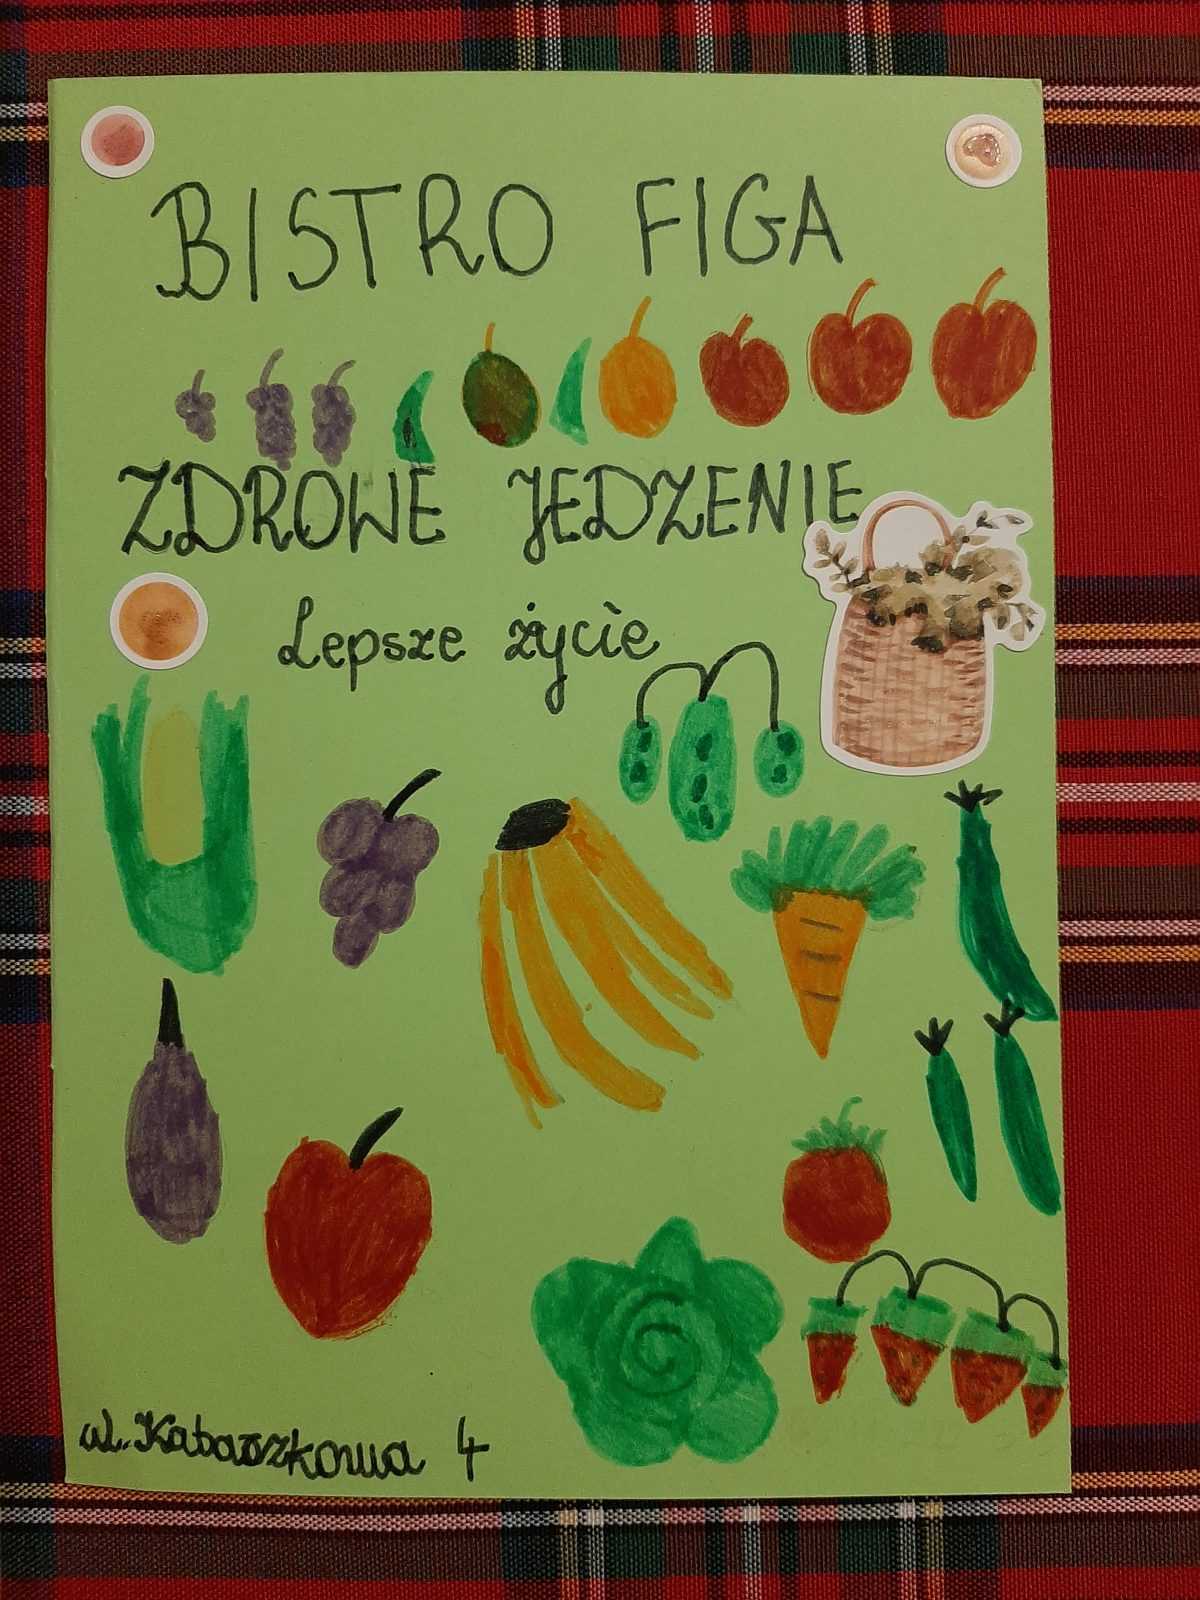 BISTRO FIGA
ZDROWE JEDZENIE
Lepsze życie
ul. Kabaszkowa 4